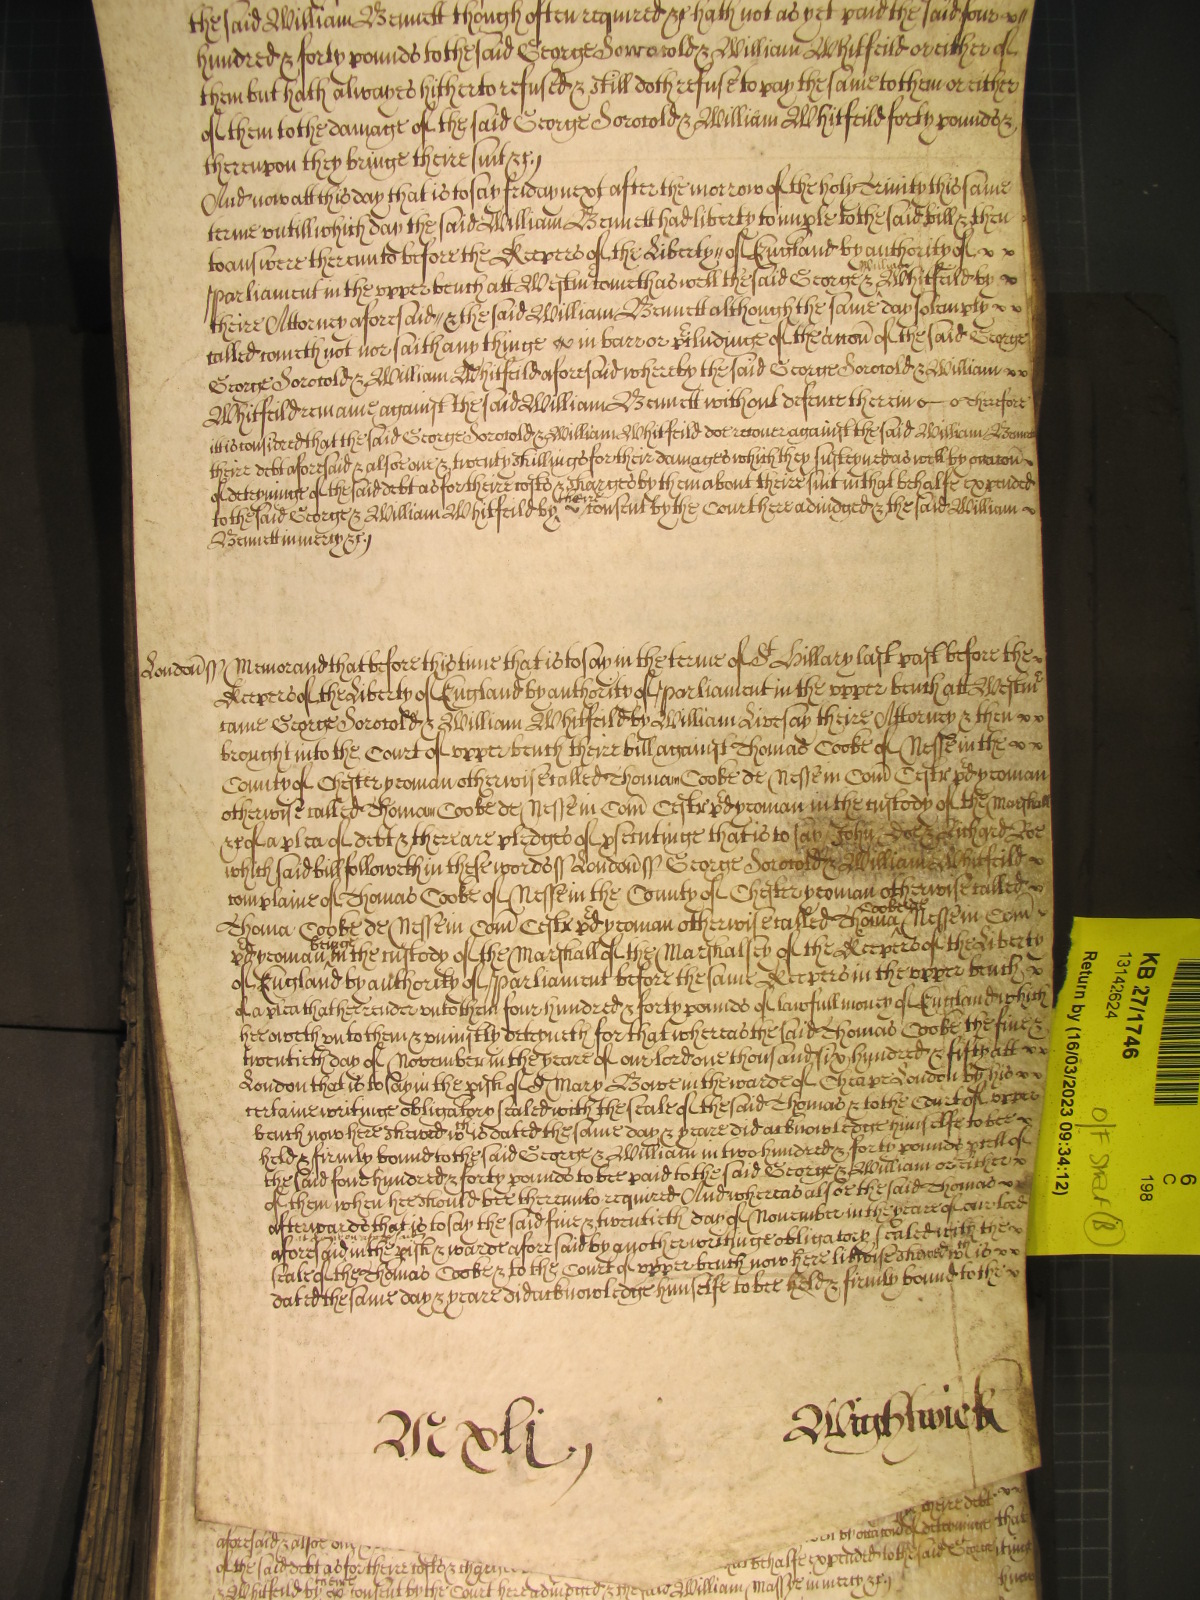 the said William Bennett though often required &c hath not as yet paid the said four
hundred & forty pounds to the said George Sorocold & William Whitfeild or either of
them but hath alwayes hitherto refused & still doth refuse to pay the same to them or either
of them to the damage of the said George Sorocold & William Whitfeild forty pounds &
thereupon they bringe theire suit &c
And now att this day that is to say friday next after the morrow of the holy Trinity this same
terme untill which day the said William Bennett had liberty to imple to the said bill & then
to answere thereunto before the Keepers of the Liberty of England by authority of
Parliament in the upper bench att Westm come th as well the said George & William Whitfeild by
theire Attorney aforesaid & the said William Bennett although the same day solemply
called cometh not nor saith any thinge in barr or p'cludinge of the accon of the said George
George Sorocold & William Whitfeild aforesaid whereby the said George Sorocold & William
Whitfeild remaine against the said William Bennett without defence therein therefore
itt is considered that the said George Sorocold & William Whitfeild doe recover against the said William Bennett
theire debt aforesaid & alsoe one & twenty shillings for their damages which they susteyned as well by occacon
of deteyninge of the said debt as for theire costs & charges by them about theire suit in that behalfe expended
to the said George & William Whitfeild by theire consent by the Court here adiudged & the said William
Bennett in mercy &c
London ss Memorand that before this time that is to say in the terme of St Hillary last past before the
Keepers of the Liberty of England by authority of Parliament in the upper bench att Westm
came George Sorocold & William Whitfeild by William Livesay theire Attorney & then
brought into the Court of upper bench theire bill against Thomas Cooke of Nesse in the
County of Chester yeoman otherwise called Thoma Cooke de Nesse in Com Cestr p'd yeoman
otherwise called Thoma Cooke de Nesse in Com Cestr p'd yeoman in the custody of the Marshall
&c of a plea of debt & there are pledges of p'secutinge that is to say John Doe & Richard Roe
which said bill followeth in these words ss London ss George Sorocold & William Whitfeild
complaine of Thomas Cooke of Nesse in the County of Chester yeoman otherwise called
Thoma Cooke de Nesse in Com Cestr p'd yeoman otherwise called Thoma Cooke de Nesse in Com
Cestr p'd yeoman beinge in the custody of the Marshall of the Marshalsey of the Keepers of the Liberty
of England by authority of Parliament before the same Keepers in the upper bench
of a plea that he render unto them four hundred & forty pounds of lawfull money of England which
hee oweth unto them & uniustly deteyneth for that whereas the said Thomas Cooke the five &
twentieth day of November in the yeare of our lord one thousand six hundred & fifty att
London that is to say in the pish of St Mary Bowe in the warde of Cheape London by his
certaine writinge obligatory sealed with the seale of the said Thomas & to the Court of upper
bench now here shewed wch is dated the same day & yeare did acknowledge himselfe to bee
held & firmly bound to the said George & William in two hundred & forty pounds p'cell of
the said four hundred & forty pounds to bee paid to the said George & William or either
of them when hee should bee thereunto required And whereas alsoe the said Thomas
afterwards that is to say the said five & twentieth day of November in the yeare of our lord
aforesaid in the pish & warde aforesaid by another writinge obligatory sealed with the
seale of the Thomas Cooke & to the Court of upper bench now here likwise shewed wch is
dated the same day & yeare did acknowledge himselfe to bee held & firmly bound to the
M xli
Wightwick
theire debt
aforesaid & alsoe one
of deteyninge
of the said debt as for theire costs & charges
behalfe expended to the said George
& Whitfeild by theire consent by the Court here adiudged & the said William Massye in mercy &c
KB 27/1746
13142624
Return by (16/03/2023 09:34:12)
6
C
198
O/F Shelf (B)